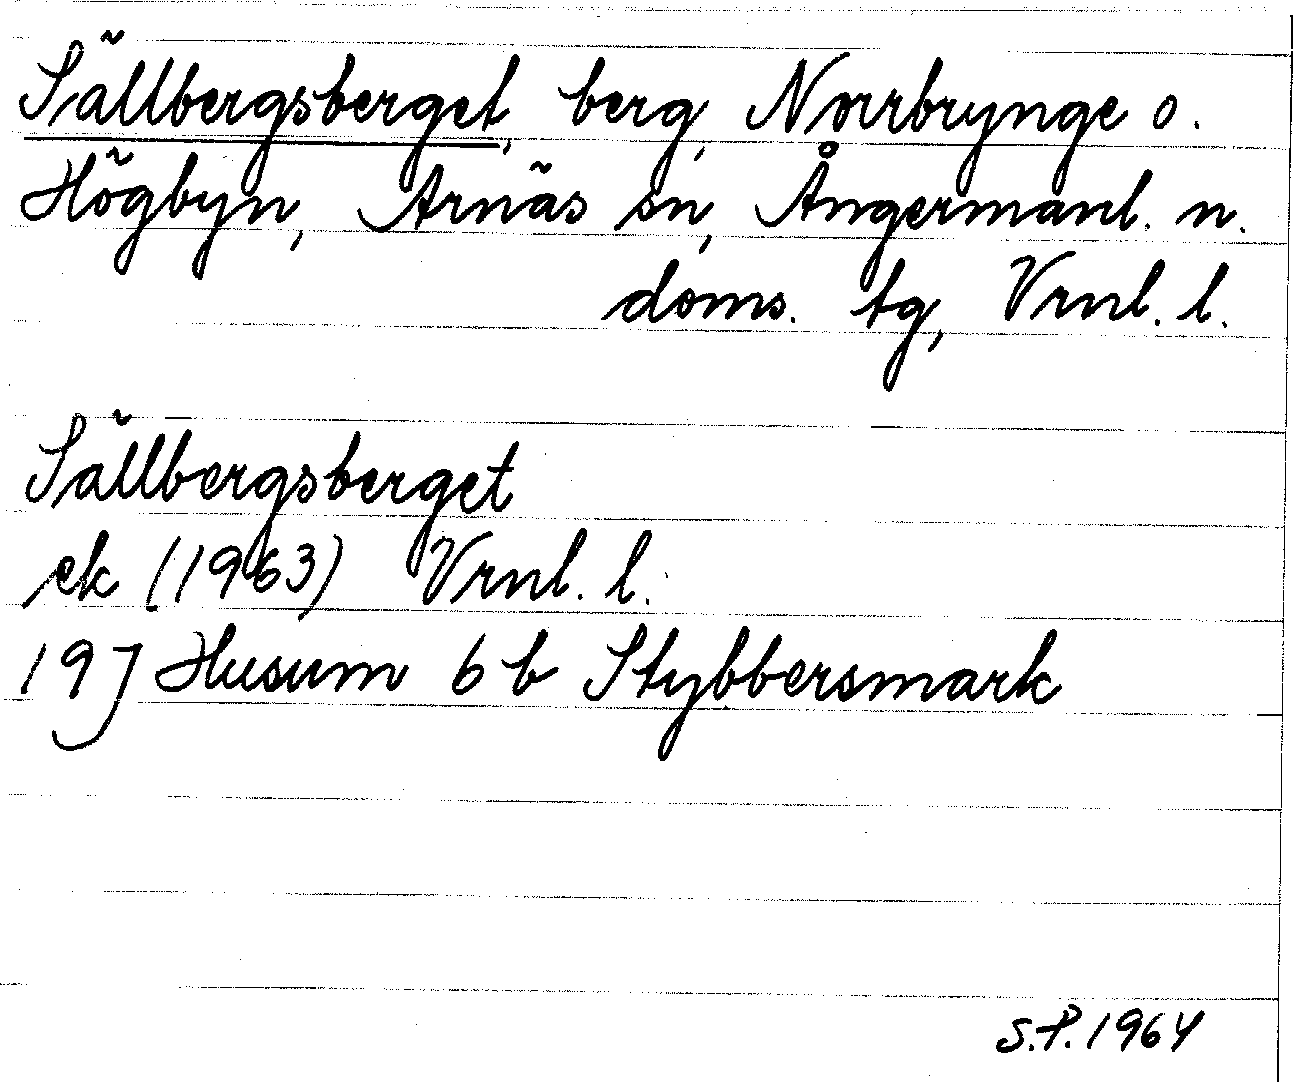 Sällbergsberget, berg, Norrbrynge o.
Högbyn, Arnäs sn, Ångermanl. n.
doms. tg, Vrnl. l.
Sällbergsberget
ek (1963) Vrnl. l.
19J Husum 6 b Stybbersmark
S.P. 1964